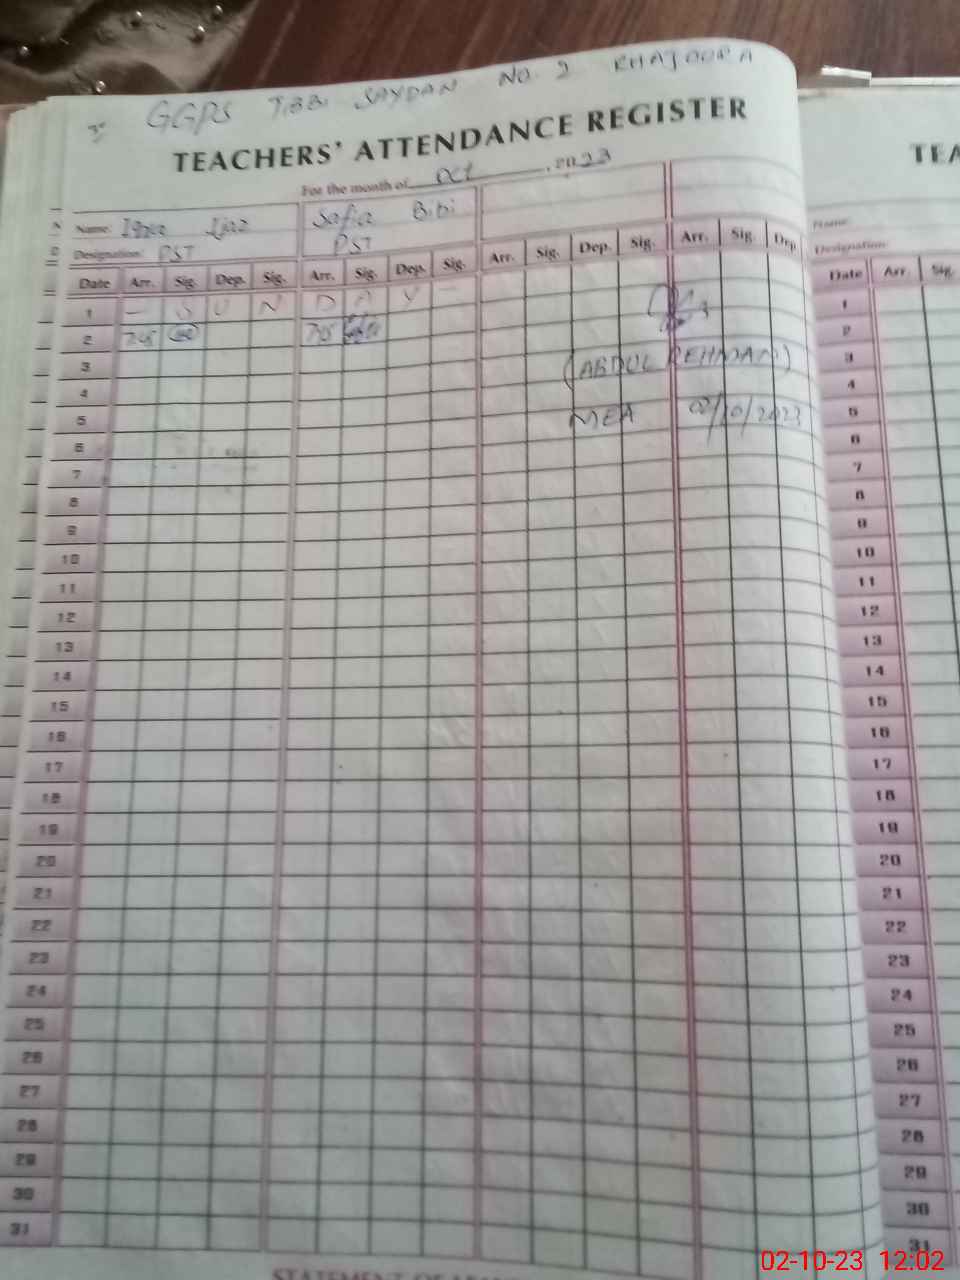 GGPS TIBBI SAYDAN NO. 2 KHAJOORA
TEACHERS' ATTENDANCE REGISTER
For the month of Oct, 2023
Name: Iqra Ijaz Safia Bibi
Designation: PST PST
Date Arr. Sig. Dep. Sig. Arr. Sig. Dep. Sig. Arr. Sig. Dep. Sig. Arr. Sig. Dep
1 — S U N D A Y —
2 7:45 7:45
3 (ABDUL REHMAN)
4
5 MEA 02/10/2023
6
7
8
9
10
11
12
13
14
15
16
17
18
19
20
21
22
23
24
25
26
27
28
29
30
31
STATEMENT OF
TEA
Name:
Designation:
Date Arr. Sig.
1
2
3
4
5
6
7
8
9
10
11
12
13
14
15
16
17
18
19
20
21
22
23
24
25
26
27
28
29
30
31
02-10-23 12:02